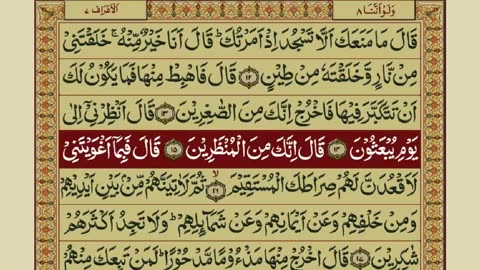 وَلَوْاَنَّنَا ٨
اَلْاَعْرَاف ٧
قَالَ مَا مَنَعَكَ اَلَّا تَسْجُدَ اِذْ اَمَرْتُكَ ؕ قَالَ اَنَا خَيْرٌ مِّنْهُ ۚ خَلَقْتَنِيْ
مِنْ نَّارٍ وَّخَلَقْتَهٗ مِنْ طِيْنٍ ۝١٢ قَالَ فَاهْبِطْ مِنْهَا فَمَا يَكُوْنُ لَكَ
اَنْ تَتَكَبَّرَ فِيْهَا فَاخْرُجْ اِنَّكَ مِنَ الصّٰغِرِيْنَ ۝١٣ قَالَ اَنْظِرْنِيْۤ اِلٰى
يَوْمِ يُبْعَثُوْنَ ۝١٤ قَالَ اِنَّكَ مِنَ الْمُنْظَرِيْنَ ۝١٥ قَالَ فَبِمَاۤ اَغْوَيْتَنِيْ
لَاَقْعُدَنَّ لَهُمْ صِرَاطَكَ الْمُسْتَقِيْمَ ۙ۝١٦ ثُمَّ لَاٰتِيَنَّهُمْ مِّنْۢ بَيْنِ اَيْدِيْهِمْ
وَمِنْ خَلْفِهِمْ وَعَنْ اَيْمَانِهِمْ وَعَنْ شَمَآئِلِهِمْ ؕ وَلَا تَجِدُ اَكْثَرَهُمْ
شٰكِرِيْنَ ۝١٧ قَالَ اخْرُجْ مِنْهَا مَذْءُوْمًا مَّدْحُوْرًا ؕ لَمَنْ تَبِعَكَ مِنْهُمْ